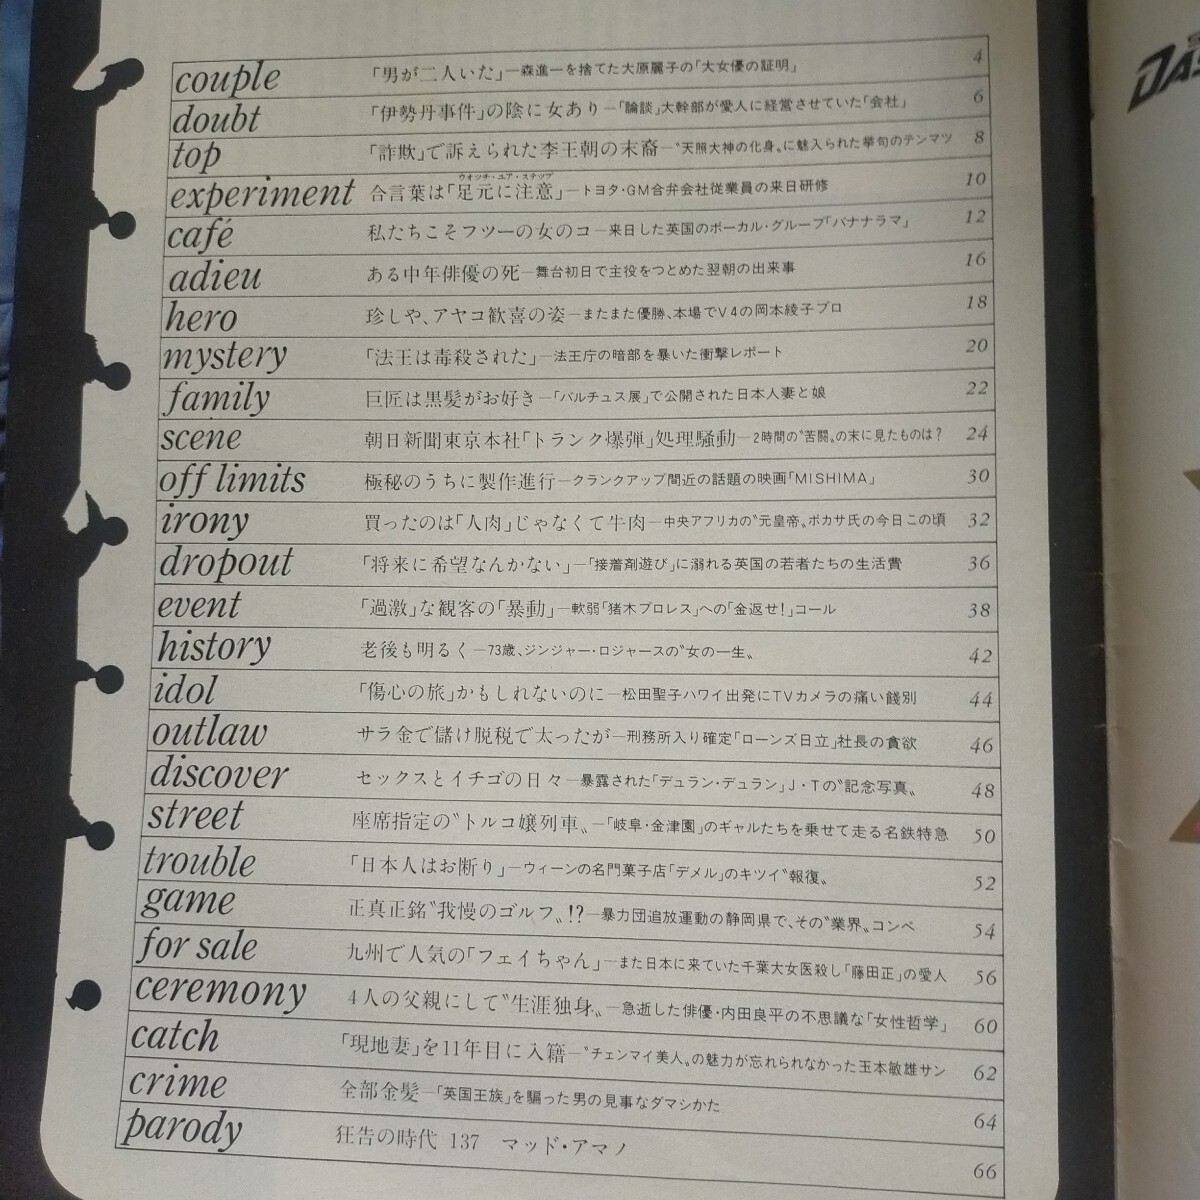 couple 「男が二人いた」―森進一を捨てた大原麗子の「大女優の証明」 4
doubt 「伊勢丹事件」の陰に女あり―「論談」大幹部が愛人に経営させていた「会社」 6
top 「詐欺」で訴えられた李王朝の末裔―〝天照大神の化身〟に魅入られた挙句のテンマツ 8
ウオッチ・ユア・ステップ
experiment 合言葉は「足元に注意」―トヨタ・GM合弁会社従業員の来日研修 10
café 私たちこそフツーの女のコ―来日した英国のボーカル・グループ「バナナラマ」 12
adieu ある中年俳優の死―舞台初日で主役をつとめた翌朝の出来事 16
hero 珍しや、アヤコ歓喜の姿―またまた優勝、本場でV4の岡本綾子プロ 18
mystery 「法王は毒殺された」―法王庁の暗部を暴いた衝撃レポート 20
family 巨匠は黒髪がお好き―「バルチュス展」で公開された日本人妻と娘 22
scene 朝日新聞東京本社「トランク爆弾」処理騒動―2時間の〝苦闘〟の末に見たものは? 24
off limits 極秘のうちに製作進行―クランクアップ間近の話題の映画「MISHIMA」 30
irony 買ったのは「人肉」じゃなくて牛肉―中央アフリカの〝元皇帝〟ボカサ氏の今日この頃 32
dropout 「将来に希望なんかない」―「接着剤遊び」に溺れる英国の若者たちの生活費 36
event 「過激」な観客の「暴動」―軟弱「猪木プロレス」への「金返せ!」コール 38
history 老後も明るく―73歳、ジンジャー・ロジャースの〝女の一生〟 42
idol 「傷心の旅」かもしれないのに―松田聖子ハワイ出発にTVカメラの痛い餞別 44
outlaw サラ金で儲け脱税で太ったが―刑務所入り確定「ローンズ日立」社長の貪欲 46
discover セックスとイチゴの日々―暴露された「デュラン・デュラン」J・Tの〝記念写真〟 48
street 座席指定の〝トルコ嬢列車〟―「岐阜・金津園」のギャルたちを乗せて走る名鉄特急 50
trouble 「日本人はお断り」―ウィーンの名門菓子店「デメル」のキツイ〝報復〟 52
game 正真正銘〝我慢のゴルフ〟!?―暴力団追放運動の静岡県で、その〝業界〟コンペ 54
for sale 九州で人気の「フェイちゃん」―また日本に来ていた千葉大女医殺し「藤田正」の愛人 56
ceremony 4人の父親にして〝生涯独身〟―急逝した俳優・内田良平の不思議な「女性哲学」 60
catch 「現地妻」を11年目に入籍―〝チェンマイ美人〟の魅力が忘れられなかった玉本敏雄サン 62
crime 全部金髪―「英国王族」を騙った男の見事なダマシかた 64
parody 狂告の時代 137 マッド・アマノ 66